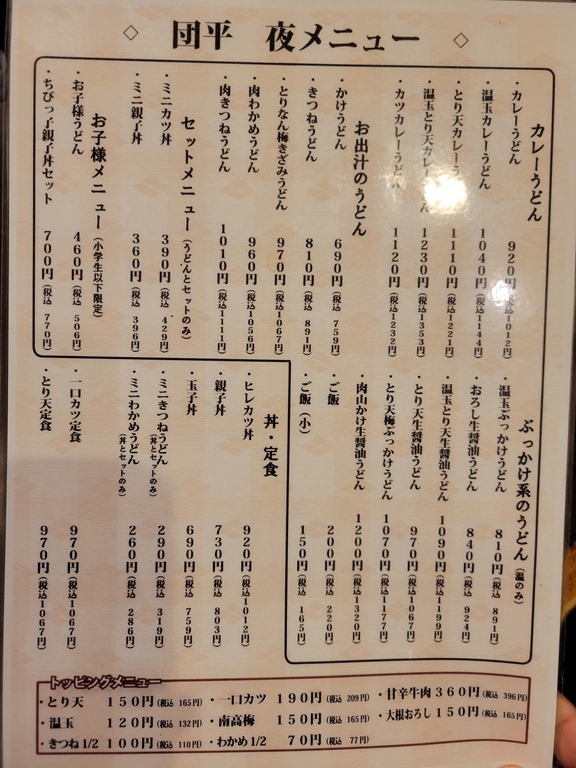 ◇ 団平　夜メニュー ◇
カレーうどん
・カレーうどん 920円(税込1012円)
・温玉カレーうどん 1040円(税込1144円)
・とり天カレーうどん 1110円(税込1221円)
・温玉とり天カレーうどん 1230円(税込1353円)
・カツカレーうどん 1120円(税込1232円)
お出汁のうどん
・かけうどん 690円(税込 759円)
・きつねうどん 810円(税込 891円)
・とりなん梅きざみうどん 970円(税込1067円)
・肉わかめうどん 960円(税込1056円)
・肉きつねうどん 1010円(税込1111円)
セットメニュー(うどんとセットのみ)
・ミニカツ丼 390円(税込 429円)
・ミニ親子丼 360円(税込 396円)
お子様メニュー(小学生以下限定)
・お子様うどん 460円(税込 506円)
・ちびっ子親子丼セット 700円(税込 770円)
ぶっかけ系のうどん(温のみ)
・温玉ぶっかけうどん 810円(税込 891円)
・おろし生醤油うどん 840円(税込 924円)
・温玉とり天生醤油うどん 1090円(税込1199円)
・とり天生醤油うどん 970円(税込1067円)
・とり天梅ぶっかけうどん 1070円(税込1177円)
・肉山かけ生醤油うどん 1200円(税込1320円)
・ご飯 200円(税込 220円)
・ご飯(小) 150円(税込 165円)
丼・定食
・ヒレカツ丼 920円(税込1012円)
・親子丼 730円(税込 803円)
・玉子丼 690円(税込 759円)
・ミニきつねうどん(丼とセットのみ) 290円(税込 319円)
・ミニわかめうどん(丼とセットのみ) 260円(税込 286円)
・一口カツ定食 970円(税込1067円)
・とり天定食 970円(税込1067円)
トッピングメニュー
・とり天 150円(税込 165円) ・一口カツ 190円(税込 209円) ・甘辛牛肉 360円(税込 396円)
・温玉 120円(税込 132円) ・南高梅 150円(税込 165円) ・大根おろし 150円(税込 165円)
・きつね1/2 100円(税込 110円) ・わかめ1/2 70円(税込 77円)